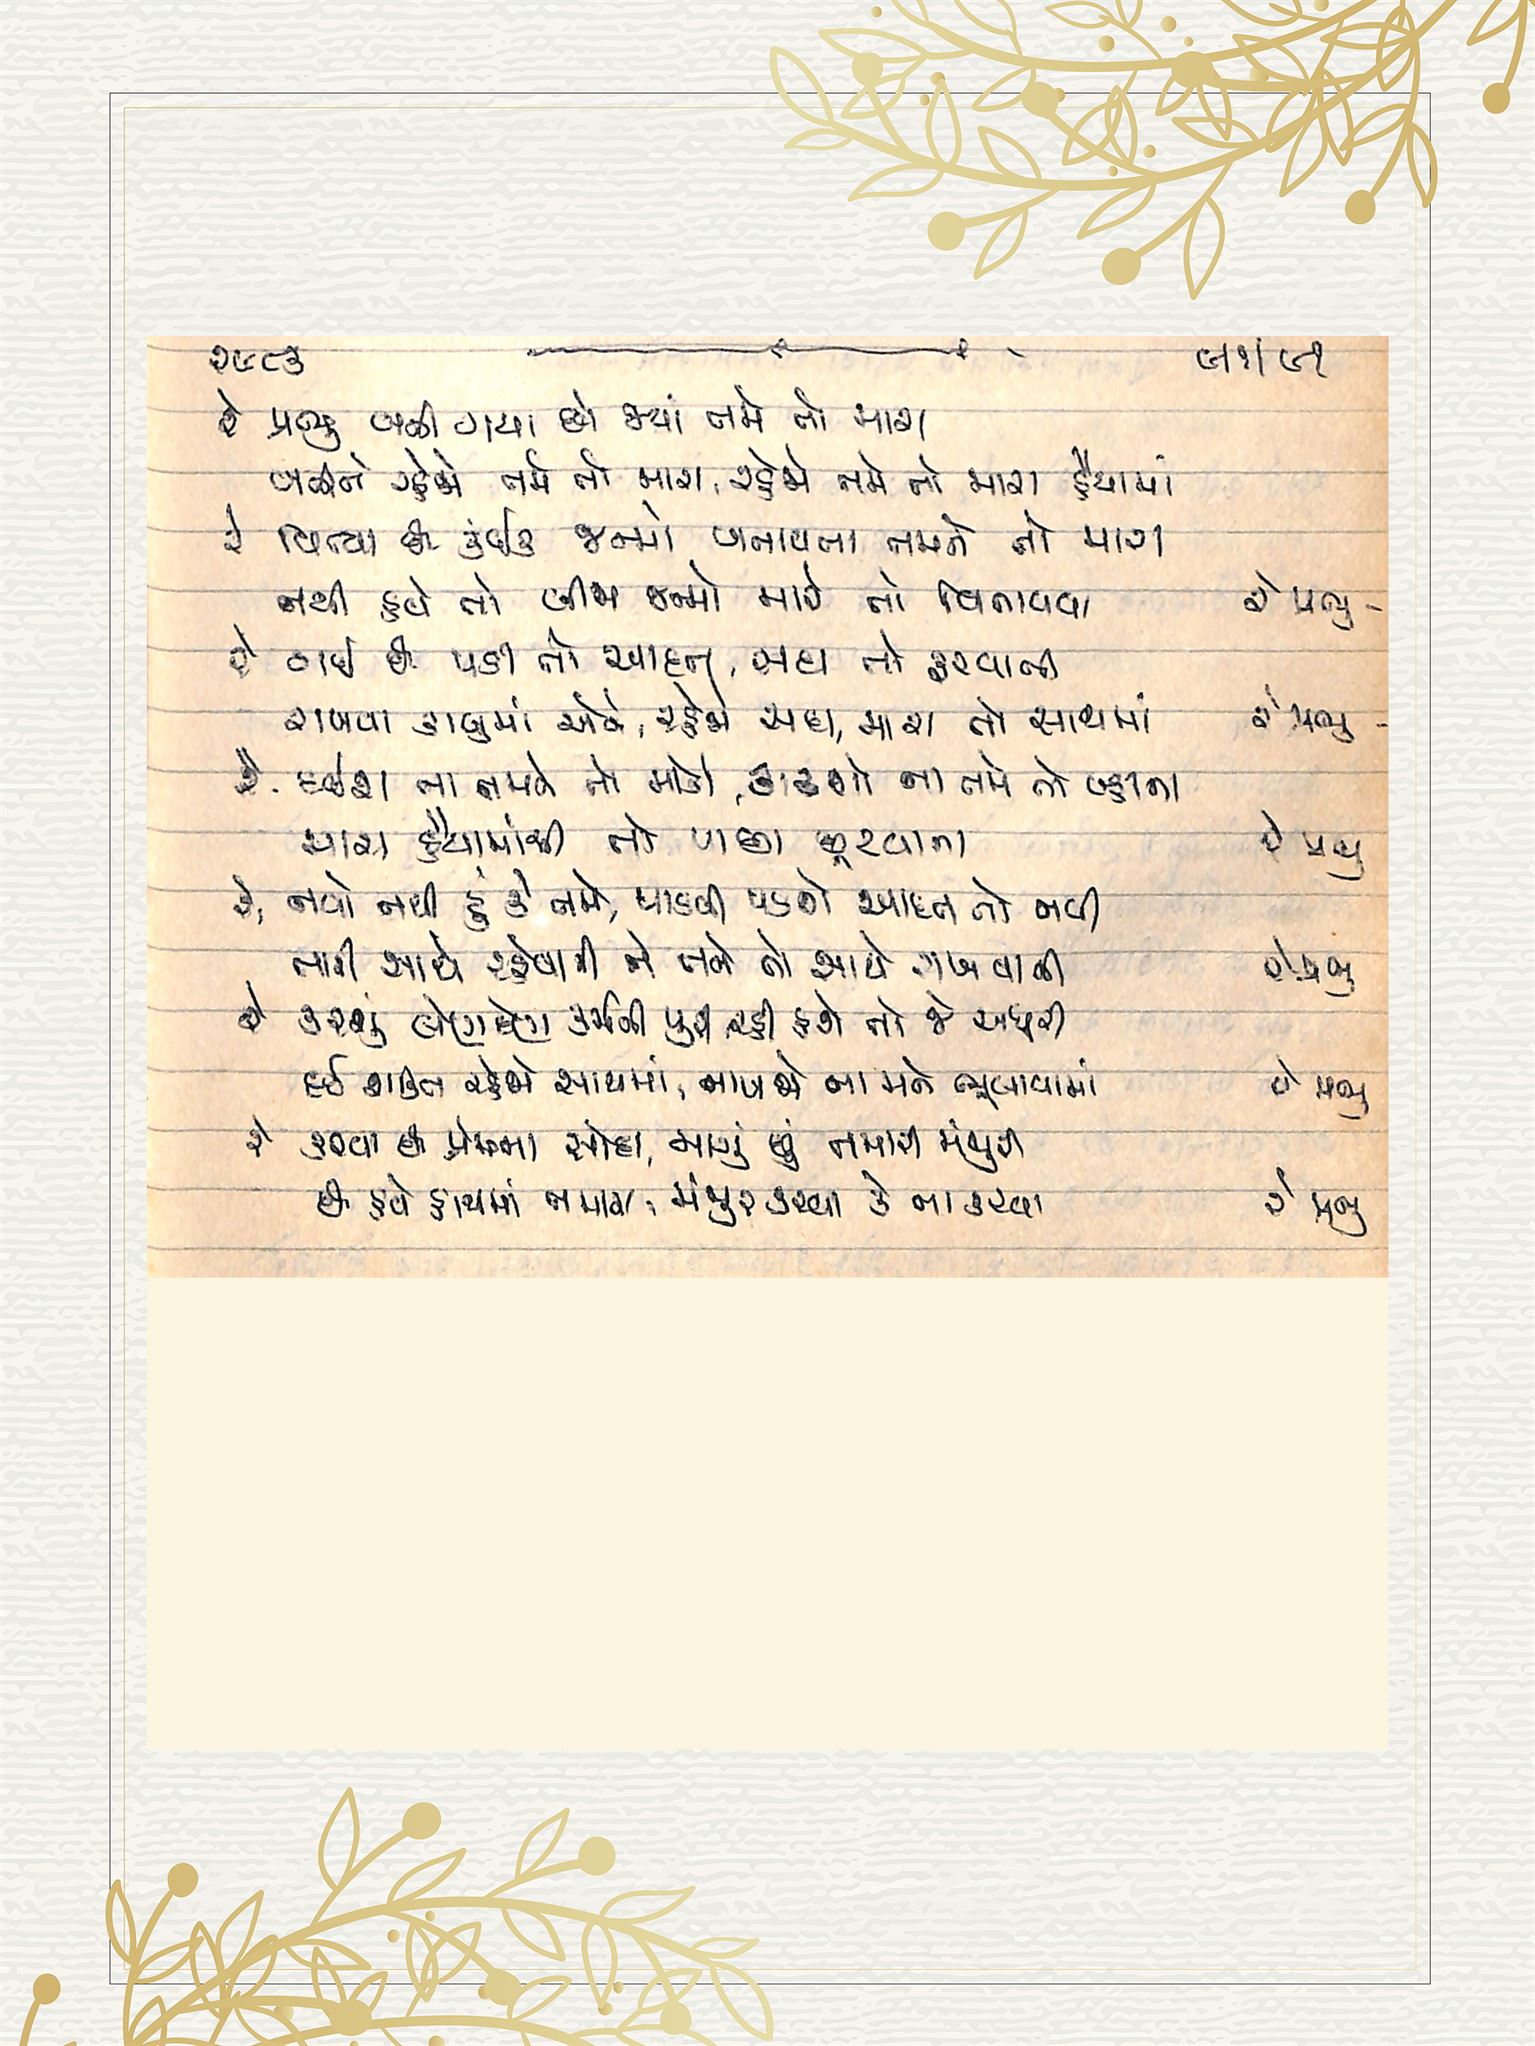 ૨૯૮૩ ૯૧/૯૧
રે પ્રભુ બની ગયા છો જ્યાં તમે તો મારા
બનીને રહેજો તમે તો મારા, રહેજો તમે તો મારા હૈયામાં
રે વિત્યા છે કંઈક જન્મો બનાવતા તમને તો મારા
નથી હવે તો બીજા જન્મો મારે તો વિતાવવા રે પ્રભુ -
રે ગઈ છે પડી તો આદત, સદા તો ફરવાની
રાખવા કાબુમાં એને, રહેજો સદા, મારા તો સાથમાં રે પ્રભુ -
રે. દઈશ ના તમને તો મોકો, કાઢશો ના તમે તો બહાના
મારા હૈયામાંથી તો પાછા ફરવાના રે પ્રભુ
રે, નવો નથી હું કે તમે, પાડવી પડશે આદત તો નવી
તારી સાથે રહેવાની ને તને તો સાથે રાખવાની રે પ્રભુ
રે કરશું લેણદેણ કર્મની પુરી રહી હશે તો જે અધુરી
દઈ શક્તિ રહેજો સાથમાં, નાખજો ના મને ભુલાવામાં રે પ્રભુ
રે કરવા છે પ્રેમના સોદા, માગું છું તમારી મંજુરી
છે હવે હાથમાં તમારા, મંજુર કરવા કે ના કરવા રે પ્રભુ